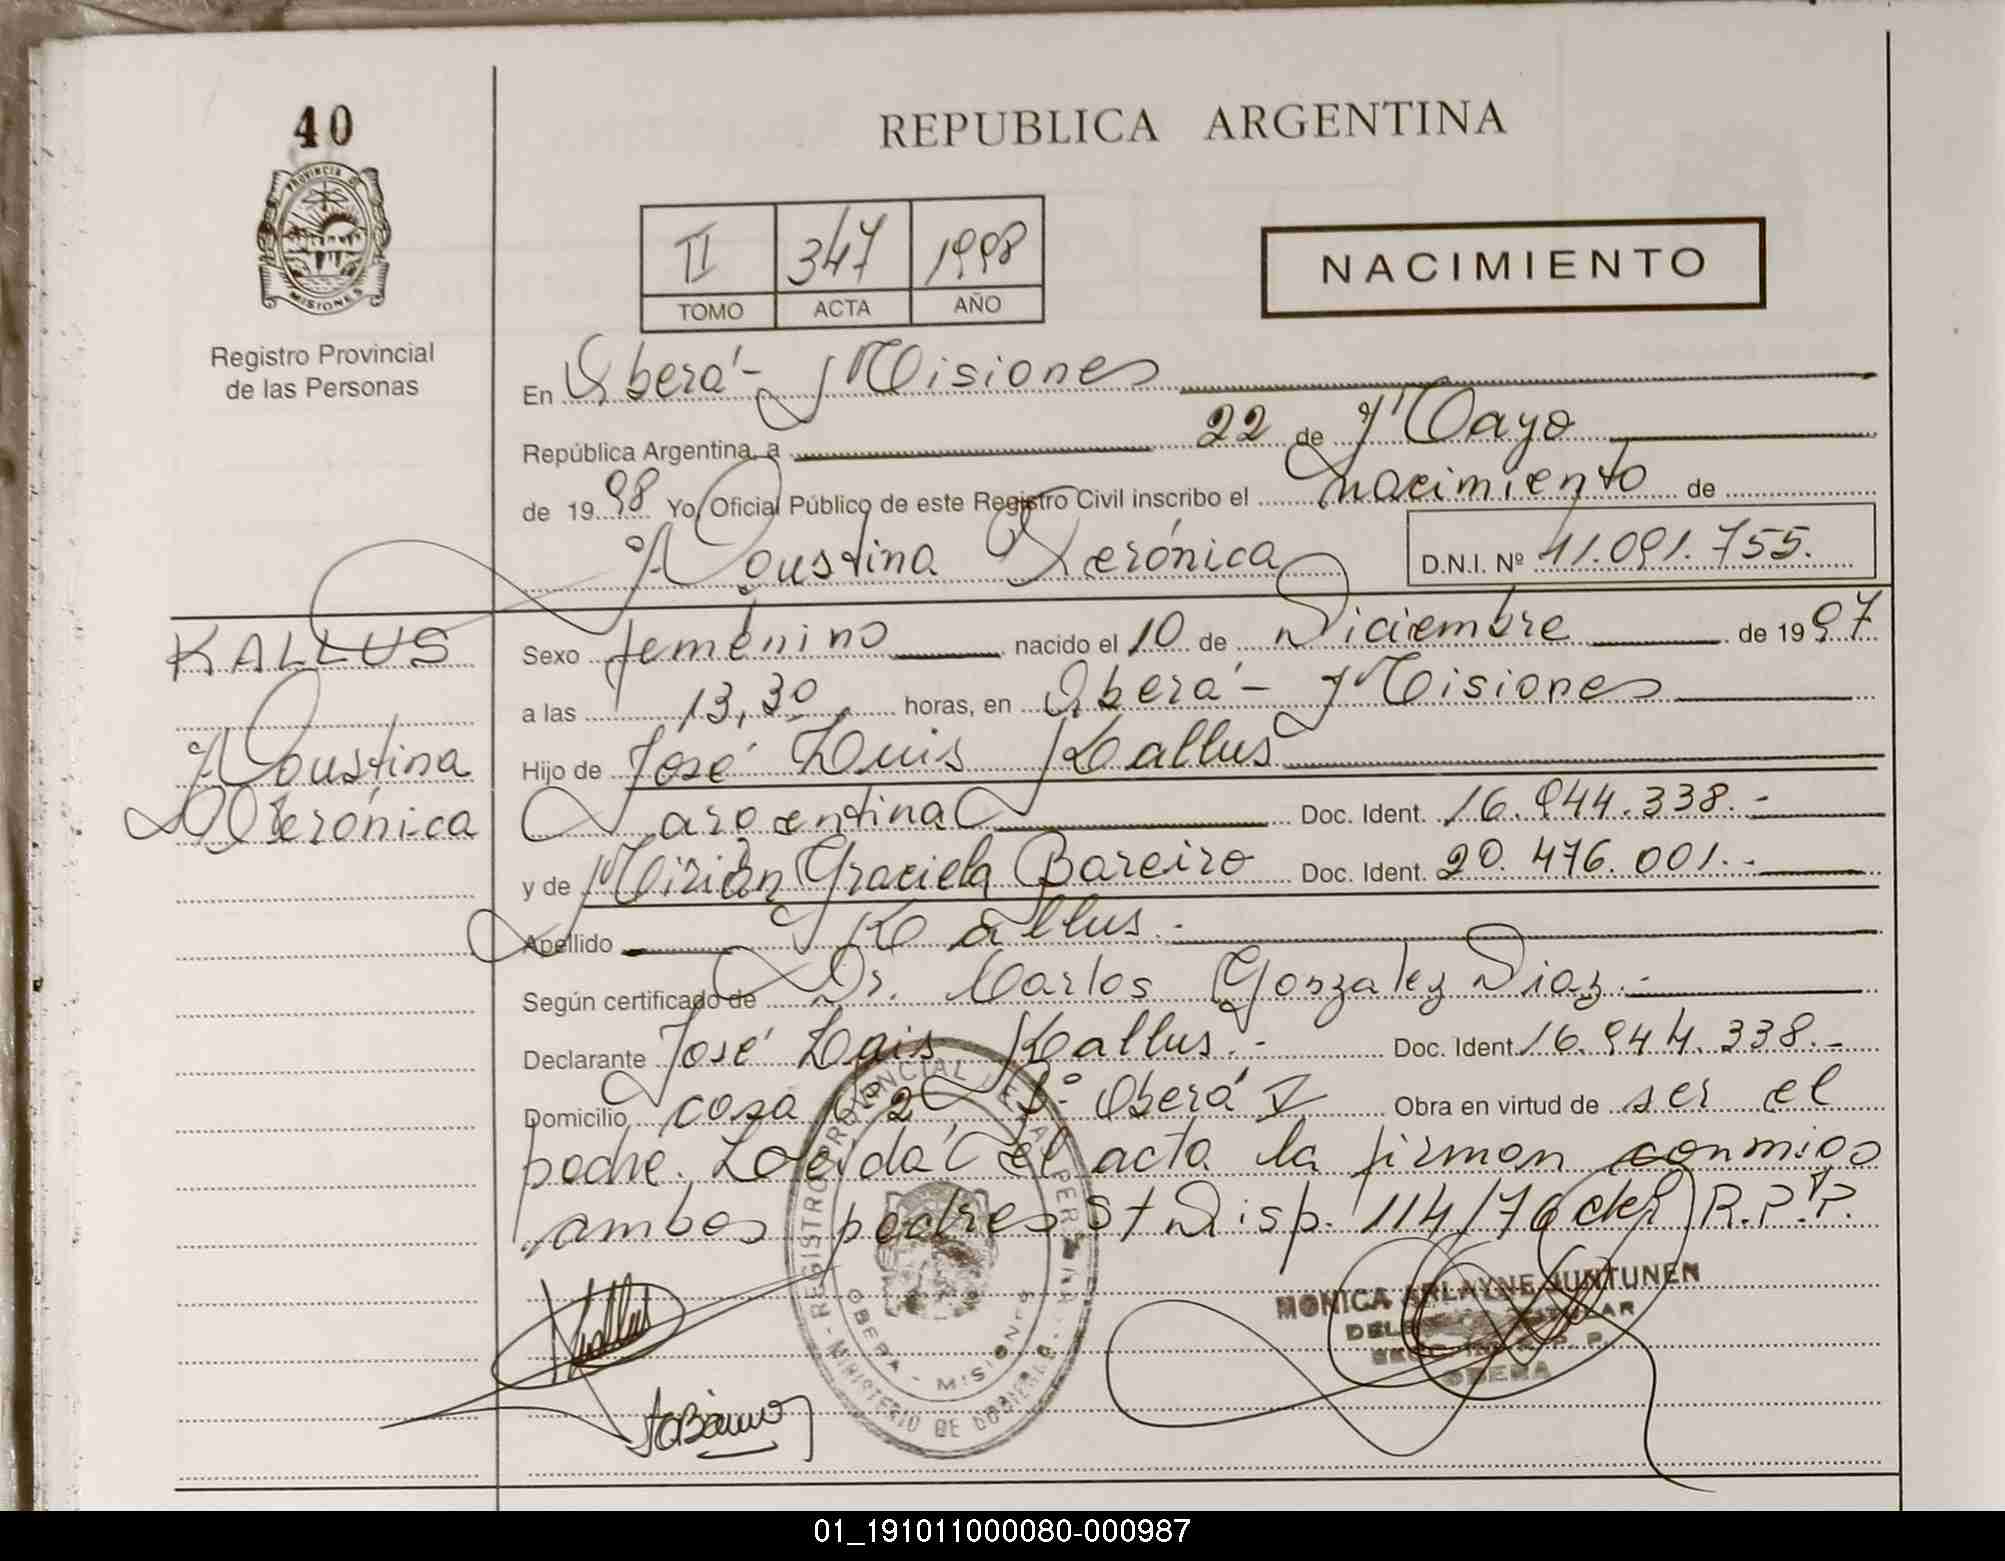 40
REPUBLICA ARGENTINA
PROVINCIA D
MISIONES
Registro Provincial
de las Personas
II 347 1998
TOMO ACTA AÑO
NACIMIENTO
En Oberá - Misiones
República Argentina, a 22 de Mayo
de 1998 Yo, Oficial Público de este Registro Civil inscribo el nacimiento de
Agustina Verónica D.N.I. Nº 41.091.755.
KALLUS
Agustina
Verónica
Sexo femenino nacido el 10 de Diciembre de 1997
a las 13,30 horas, en Oberá - Misiones
Hijo de José Luis Kallus
argentina Doc. Ident. 16.944.338.-
y de Mirian Graciela Bareiro Doc. Ident. 20.476.001.-
Apellido Kallus.-
Según certificado de Dr. Carlos Gonzalez Diaz.-
Declarante José Luis Kallus.- Doc. Ident. 16.944.338.-
Domicilio casa Oberá V Obra en virtud de ser el
padre. Leída el acta la firman conmigo
ambos padres s/ Disp. 114/76 del R.P.P.
REGISTRO PROVINCIAL DE LAS PERSONAS
OBERA - MISIONES
MINISTERIO DE GOBIERNO
MONICA ARLAYNE JUNTUNEN
TITULAR
R. P. P.
OBERA
01_191011000080-000987